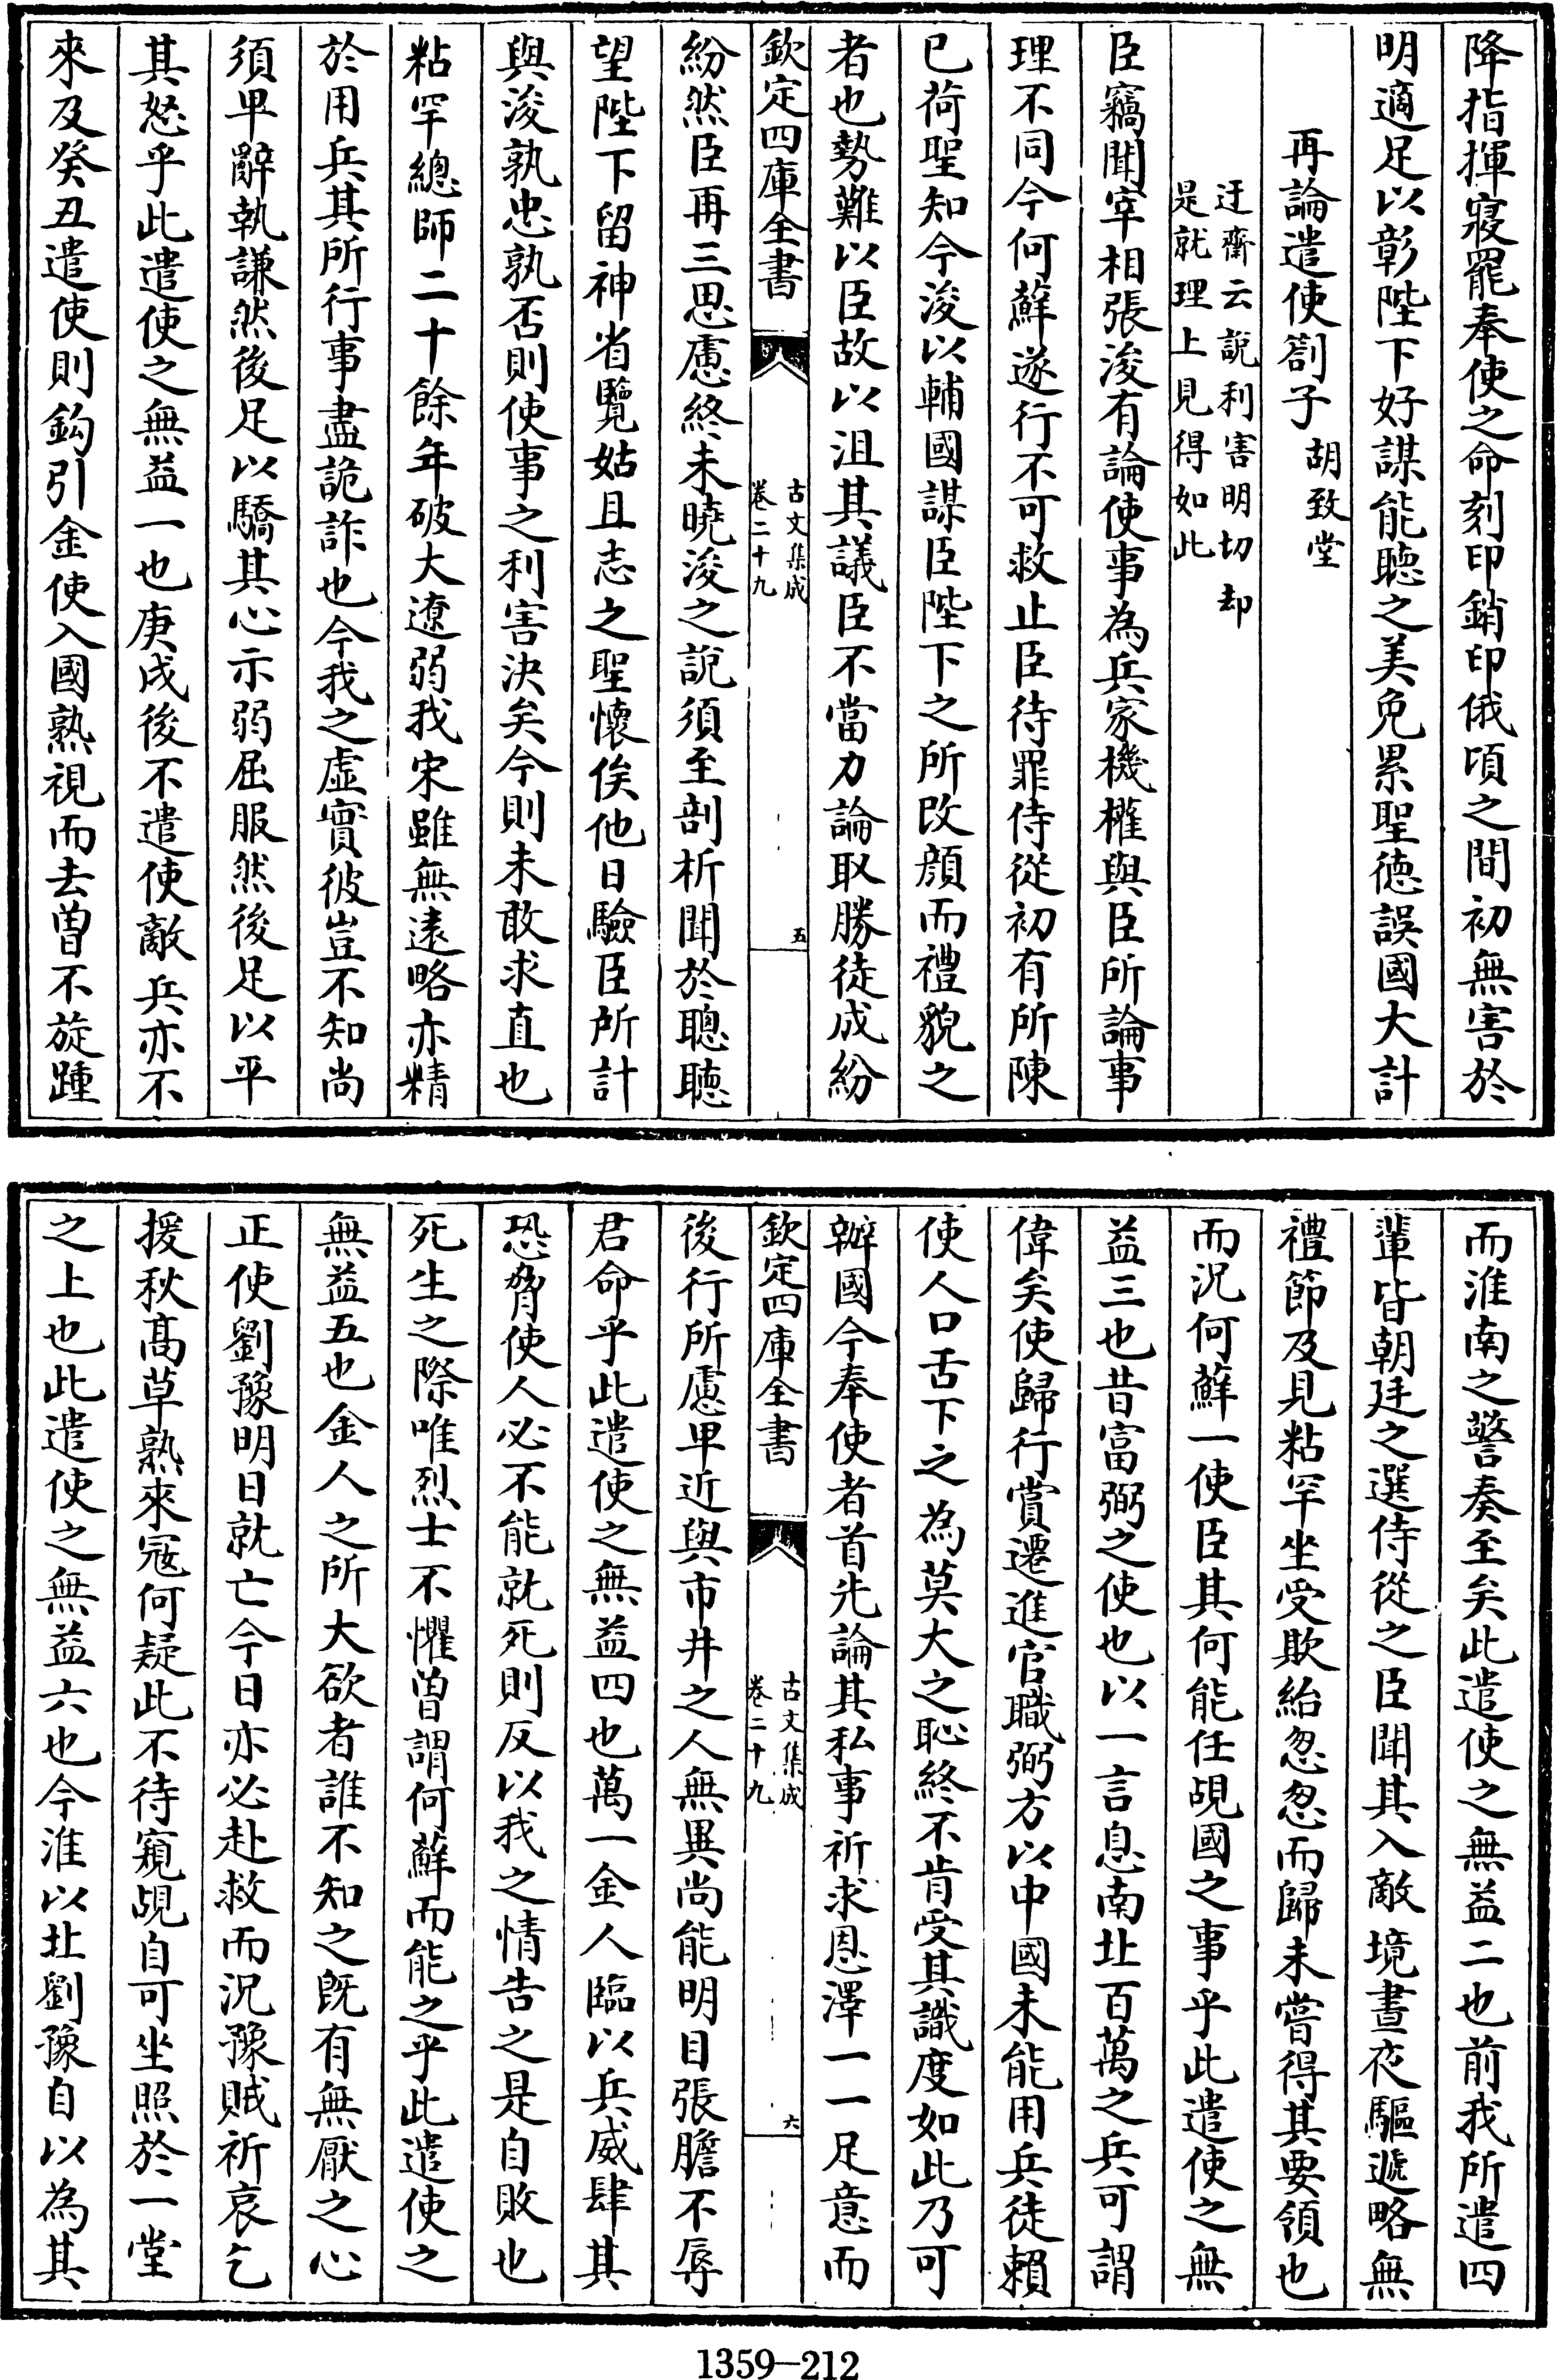 降指揮寢罷奉使之命刻印銷印俄頃之間初無害於
明適足以彰陛下好謀能聽之美免累聖徳誤國大計
再論遣使劄子 胡致堂
迂齋云説利害明切却
是就理上見得如此
臣竊聞宰相張浚有論使事為兵家機權與臣所論事
理不同今何蘇遂行不可救止臣待罪侍從初有所陳
已荷聖知今浚以輔國謀臣陛下之所改顔而禮貌之
者也勢難以臣故以沮其議臣不當力論取勝徒成紛
欽定四庫全書
古文集成
卷二十九
五
紛然臣再三思慮終未曉浚之說須至剖析聞於聰聽
望陛下留神省覽姑且志之聖懷俟他日驗臣所計
與浚孰忠孰否則使事之利害決矣今則未敢求直也
粘罕總師二十餘年破大遼弱我宋雖無逺略亦精
於用兵其所行事盡詭詐也今我之虚實彼豈不知尚
須卑辭執謙然後足以驕其心示弱屈服然後足以平
其怒乎此遣使之無益一也庚戌後不遣使敵兵亦不
來及癸丑遣使則鈎引金使入國熟視而去曽不旋踵
而淮南之警奏至矣此遣使之無益二也前我所遣四
輩皆朝廷之選侍從之臣聞其入敵境晝夜驅遞略無
禮節及見粘罕坐受欺紿忽忽而歸未嘗得其要領也
而況何蘇一使臣其何能任覘國之事乎此遣使之無
益三也昔富弼之使也以一言息南北百萬之兵可謂
偉矣使歸行賞遷進官職弼方以中國未能用兵徒賴
使人口舌下之為莫大之恥終不肯受其識度如此乃可
辦國今奉使者首先論其私事祈求恩澤一一足意而
欽定四庫全書
古文集成
卷二十九
六
後行所慮卑近與市井之人無異尚能明目張膽不辱
君命乎此遣使之無益四也萬一金人臨以兵威肆其
恐脅使人必不能就死則反以我之情告之是自敗也
死生之際唯烈士不懼曽謂何蘇而能之乎此遣使之
無益五也金人之所大欲者誰不知之既有無厭之心
正使劉豫明日就亡今日亦必赴救而況豫賊祈哀乞
援秋髙草熟來冦何疑此不待窺覘自可坐照於一堂
之上也此遣使之無益六也今淮以北劉豫自以為其
1359-212